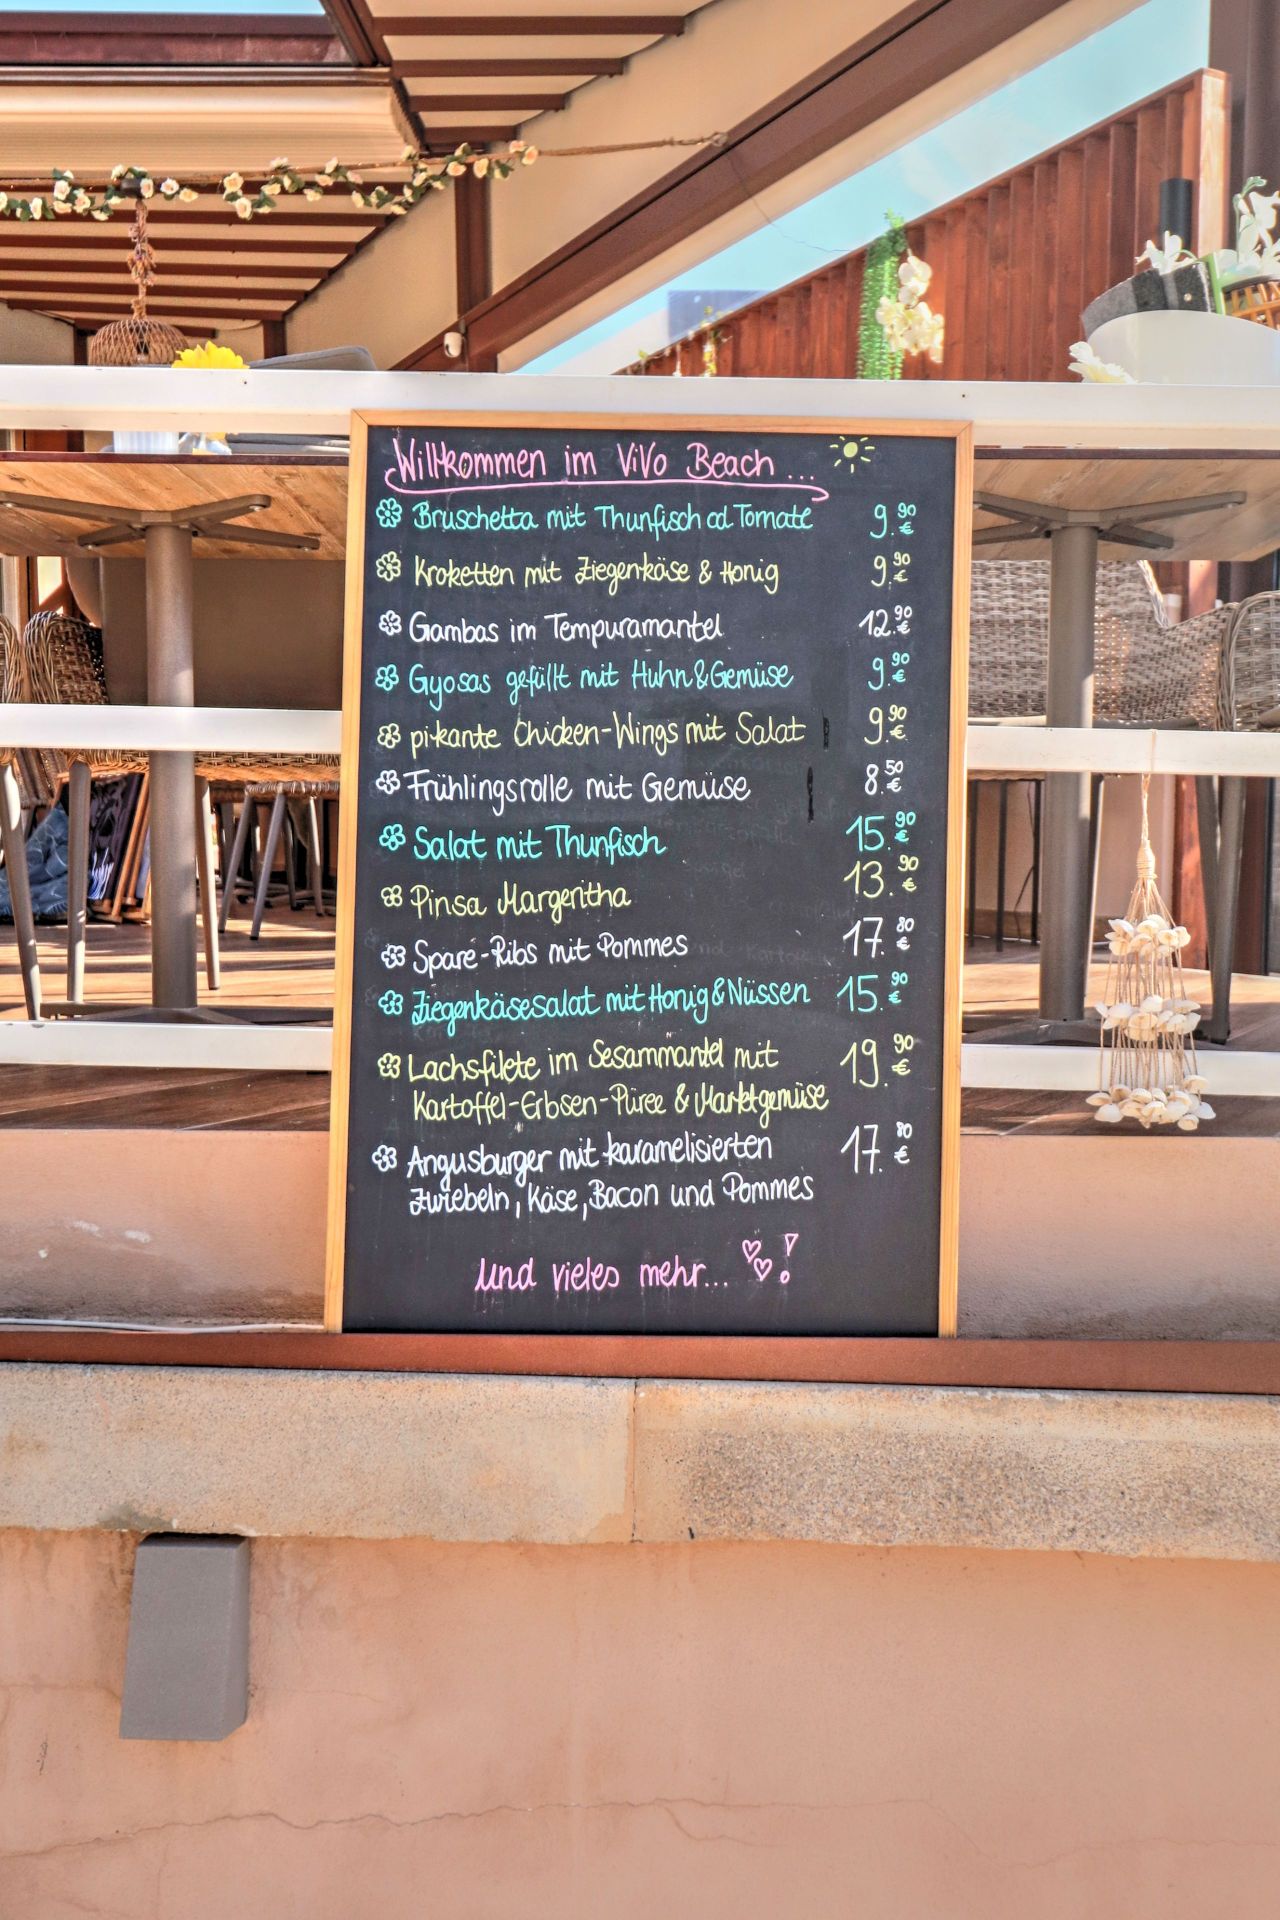 Willkommen im ViVo Beach ...
Bruschetta mit Thunfisch od Tomate 9.90 €
Kroketten mit Ziegenkäse & Honig 9.90 €
Gambas im Tempuramantel 12.90 €
Gyosas gefüllt mit Huhn & Gemüse 9.90 €
pikante Chicken-Wings mit Salat 9.90 €
Frühlingsrolle mit Gemüse 8.50 €
Salat mit Thunfisch 15.90 €
Pinsa Margeritha 13.90 €
Spare-Ribs mit Pommes 17.80 €
Ziegenkäsesalat mit Honig & Nüssen 15.90 €
Lachsfilete im Sesammantel mit 19.90 €
Kartoffel-Erbsen-Püree & Marktgemüse
Angusburger mit karamelisierten 17.80 €
Zwiebeln, Käse, Bacon und Pommes
und vieles mehr... !